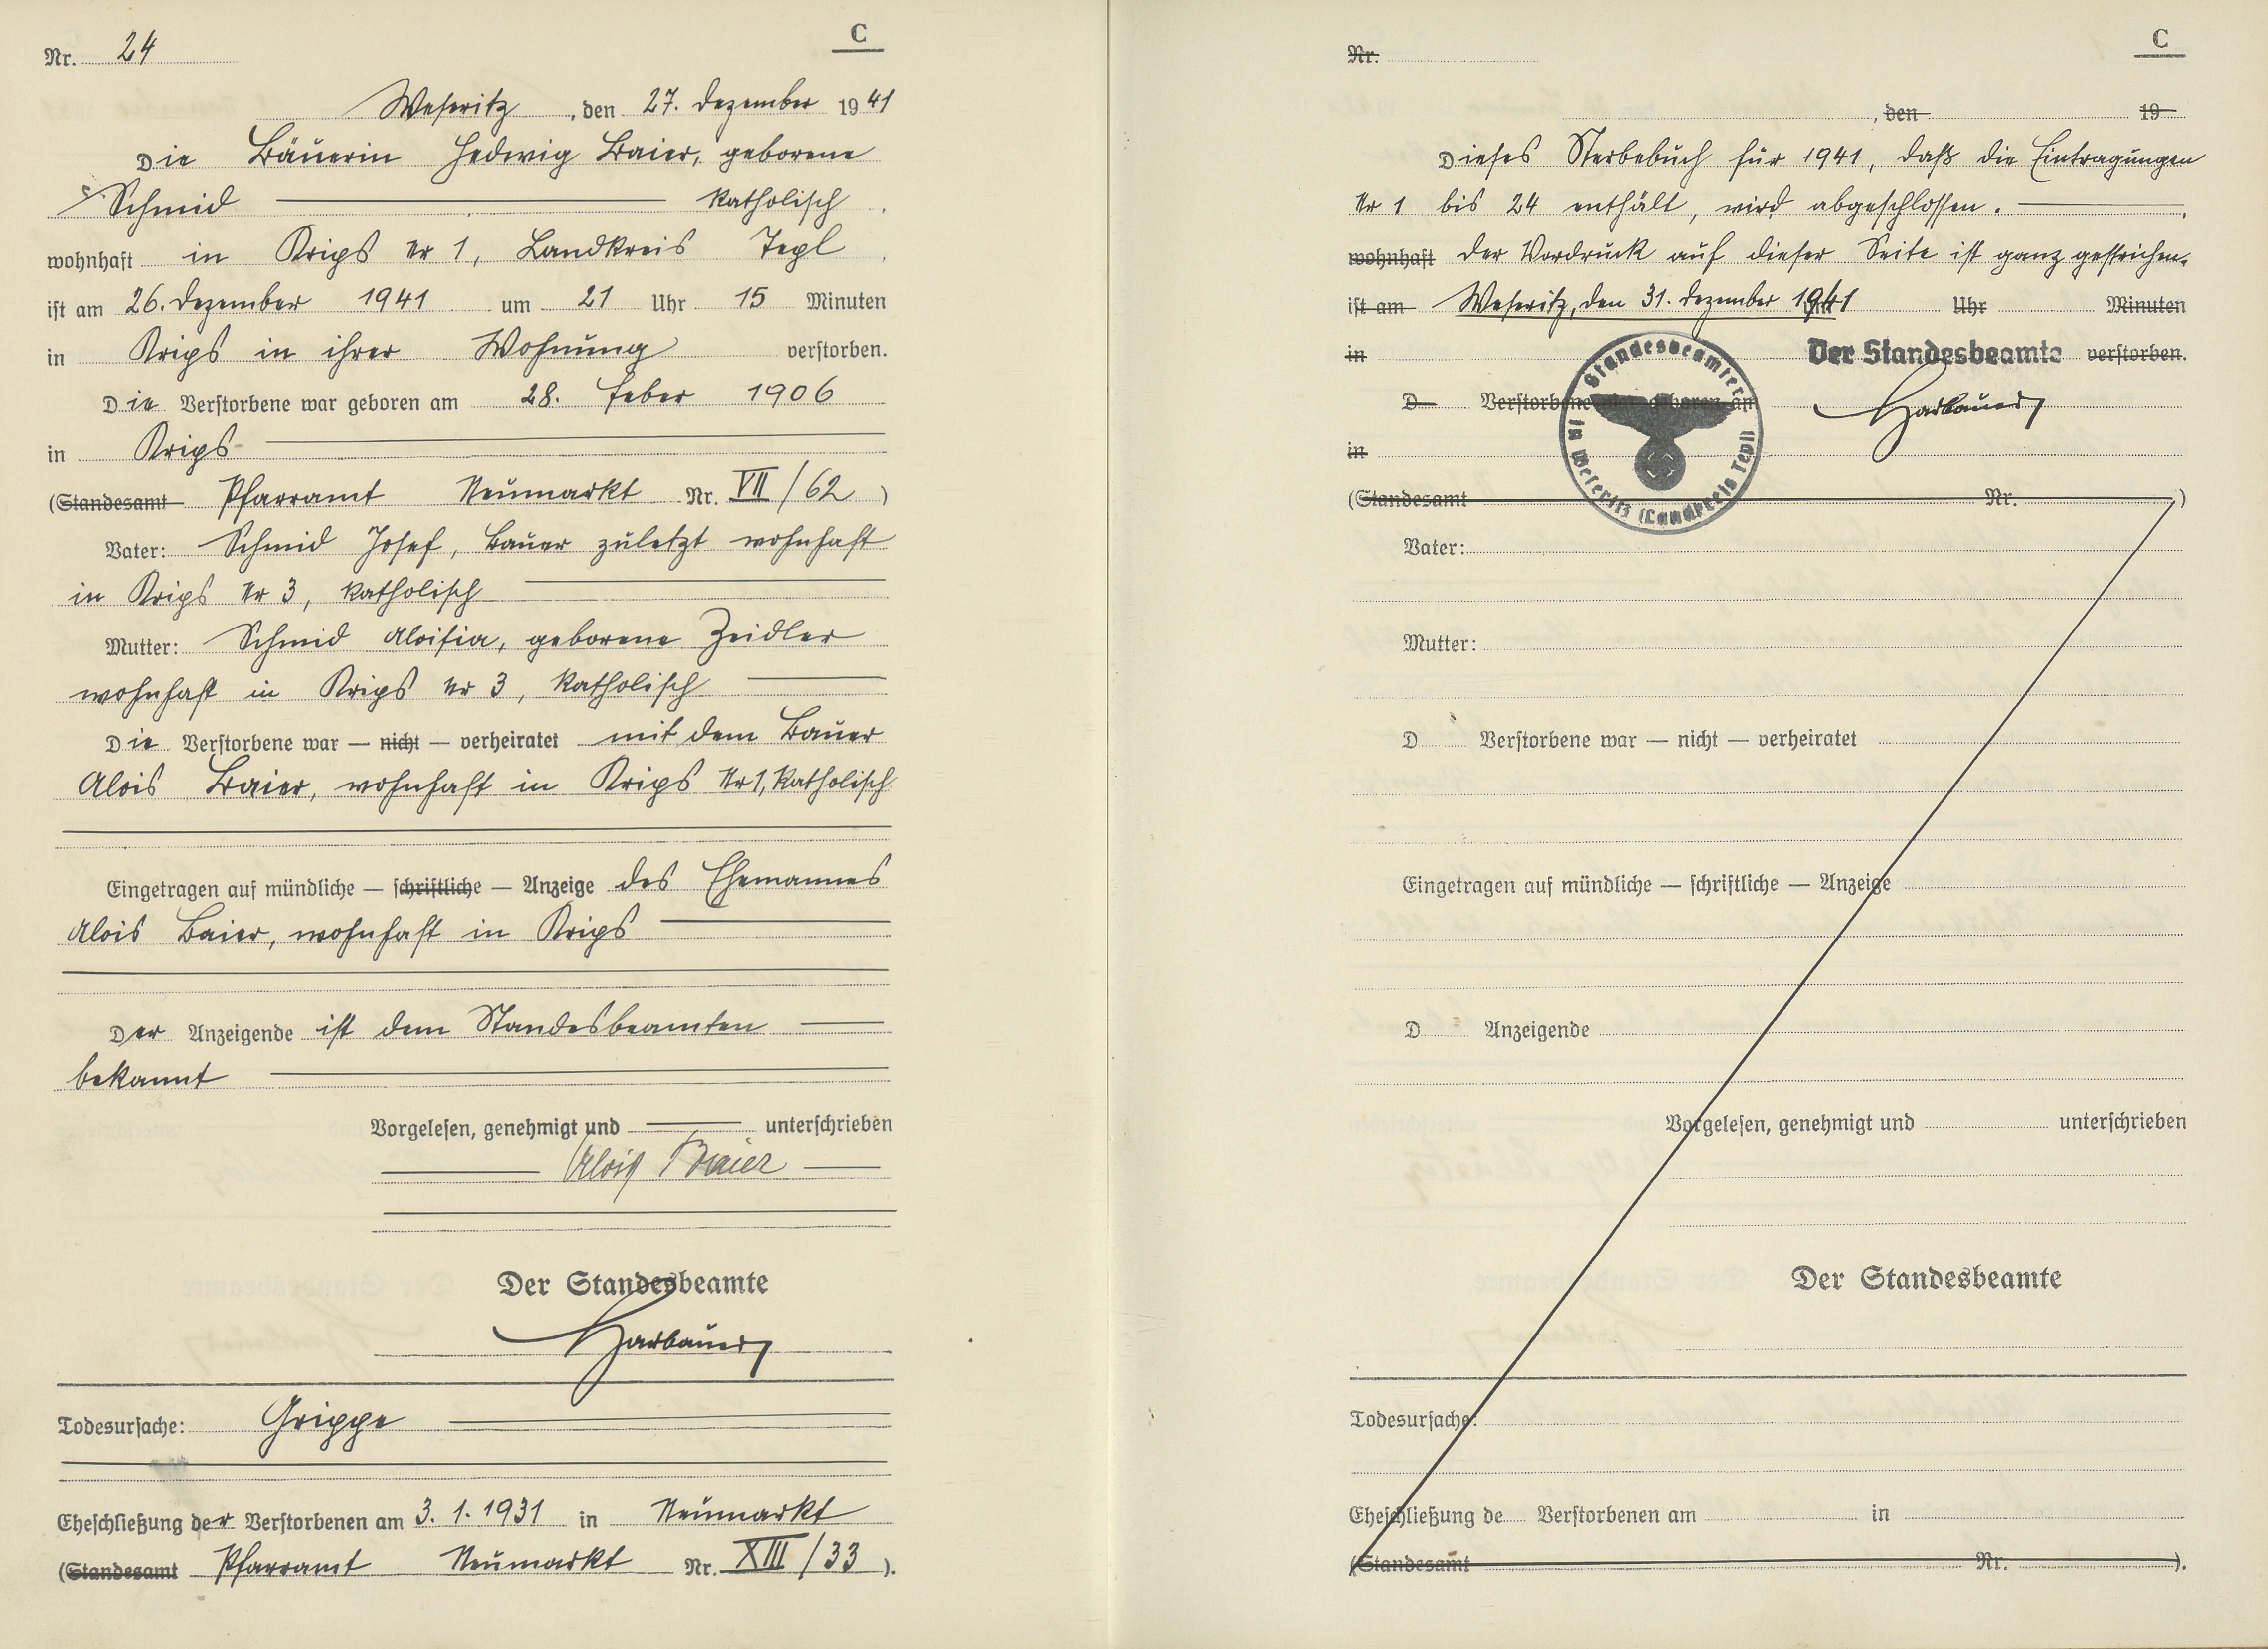 C
Nr. 24
Weseritz, den 27. Dezember 1941
Die Bäuerin Hedwig Baier, geborene
Schmid katholisch
wohnhaft in Krips Nr 1, Landkreis Tepl
ist am 26. Dezember 1941 um 21 Uhr 15 Minuten
in Krips in ihrer Wohnung verstorben.
Die Verstorbene war geboren am 28. Feber 1906
in Krips
(Standesamt Pfarramt Neumarkt Nr. VII/62)
Vater: Schmid Josef, Bauer zuletzt wohnhaft
in Krips Nr 3, katholisch
Mutter: Schmid Aloisia, geborene Zeidler
wohnhaft in Krips Nr 3, katholisch
Die Verstorbene war — nicht — verheiratet mit dem Bauer
Alois Baier, wohnhaft in Krips Nr 1, katholisch
Eingetragen auf mündliche — schriftliche — Anzeige des Ehemannes
Alois Baier, wohnhaft in Krips
Der Anzeigende ist dem Standesbeamten
bekannt
Vorgelesen, genehmigt und unterschrieben
Alois Baier
Der Standesbeamte
Todesursache: Grippe
Eheschließung der Verstorbenen am 3. 1. 1931 in Neumarkt
(Standesamt Pfarramt Neumarkt Nr. XIII/33).
C
Nr.
, den 19
Dieses Sterbebuch für 1941, daß die Eintragungen
Nr 1 bis 24 enthält, wird abgeschlossen.
wohnhaft Der Vordruck auf dieser Seite ist ganz gestrichen.
ist am Weseritz, den 31. Dezember 1941 Uhr Minuten
in Der Standesbeamte verstorben.
D Verstorbene war geboren am
Standesbeamter in Weseritz (Landkreis Tepl)
in
(Standesamt Nr. )
Vater:
Mutter:
D Verstorbene war — nicht — verheiratet
Eingetragen auf mündliche — schriftliche — Anzeige
D Anzeigende
Vorgelesen, genehmigt und unterschrieben
Der Standesbeamte
Todesursache:
Eheschließung de Verstorbenen am in
(Standesamt Nr. ).